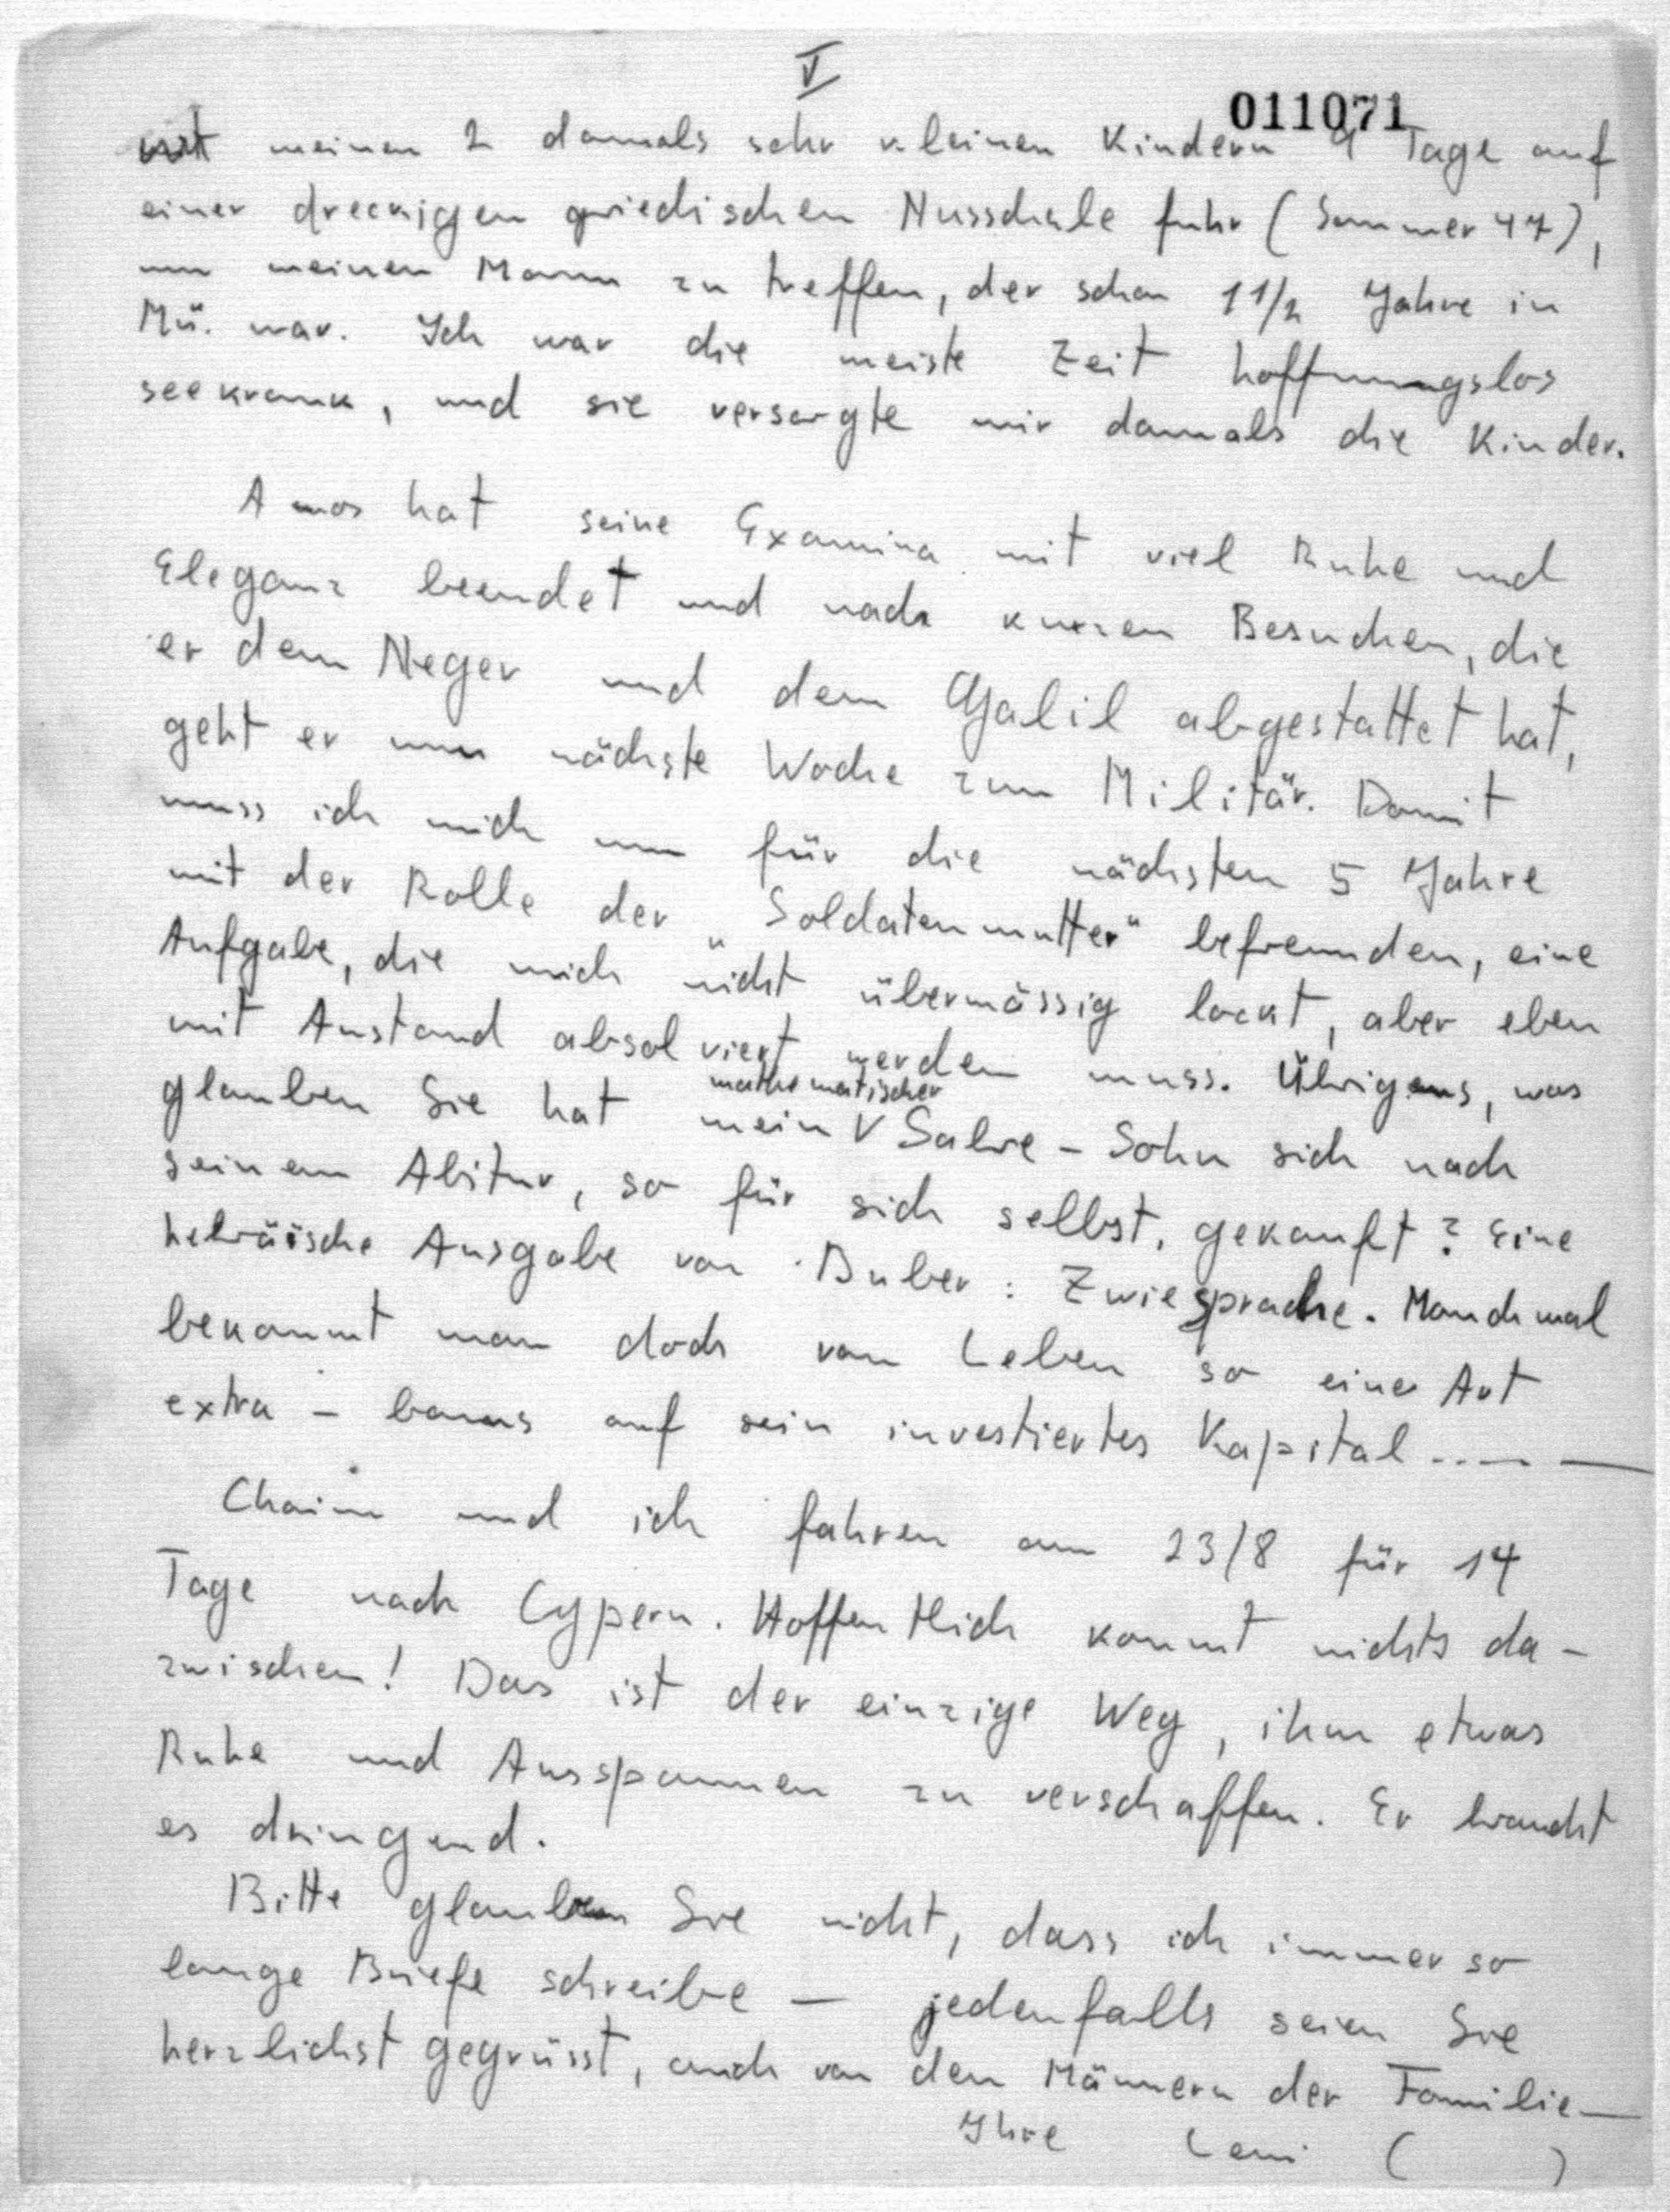 V
011071
mit meinen 2 damals sehr kleinen Kindern 9 Tage auf
einer dreckigen griechischen Nusschale fuhr (Sommer 47),
um meinen Mann zu treffen, der schon 1 1/2 Jahre in
Mü. war. Ich war die meiste Zeit hoffnungslos
seekrank, und sie versorgte mir damals die Kinder.
Amos hat seine Examina mit viel Ruhe und
Eleganz beendet und nach kurzen Besuchen, die
er dem Negev und dem Galil abgestattet hat,
geht er nun nächste Woche zum Militär. Damit
muss ich mich nun für die nächsten 5 Jahre
mit der Rolle der „Soldatenmutter" befreunden, eine
Aufgabe, die mich nicht übermässig lockt, aber eben
mit Anstand absolviert werden muss. Übrigens, was
mathematischer
glauben Sie hat mein V Sabre-Sohn sich nach
seinem Abitur, so für sich selbst, gekauft? Eine
hebräische Ausgabe von Buber: Zwiesprache. Manchmal
bekommt man doch vom Leben so eine Art
extra-bonus auf sein investiertes Kapital.... —
Chaim und ich fahren am 23/8 für 14
Tage nach Cypern. Hoffentlich kommt nichts da-
zwischen! Das ist der einzige Weg, ihm etwas
Ruhe und Ausspannen zu verschaffen. Er braucht
es dringend.
Bitte glauben Sie nicht, dass ich immer so
lange Briefe schreibe — jedenfalls seien Sie
herzlichst gegrüsst, auch von den Männern der Familie —
Ihre Leni ( )